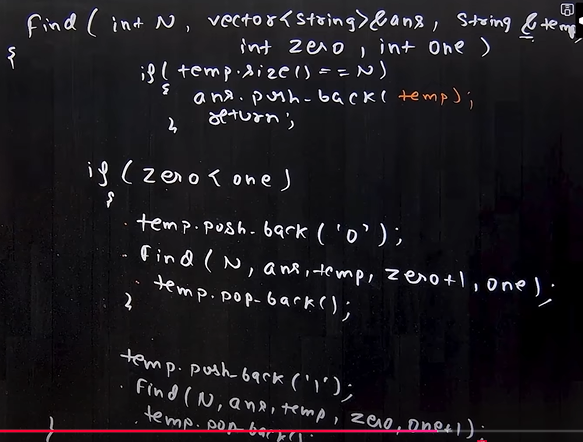 Find ( int N, vector<string>&ans, string &temp,
int zero, int one )
{
if( temp.size()==N)
{
ans.push_back( temp);
return;
}
if (zero < one)
{
temp.push_back('0');
Find ( N, ans, temp, zero+1, one);
temp.pop_back();
}
temp.push_back('1');
Find(N, ans, temp, zero, one+1);
temp.pop_back();
}